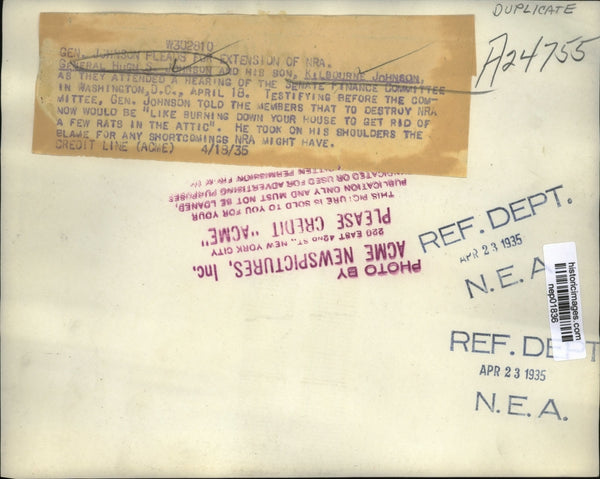 DUPLICATE
A24755
W302810
GEN. JOHNSON PLEADS FOR EXTENSION OF NRA.
GENERAL HUGH S. JOHNSON AND HIS SON, KILBOURNE JOHNSON,
AS THEY ATTENDED A HEARING OF THE SENATE FINANCE COMMITTEE
IN WASHINGTON, D.C., APRIL 18. TESTIFYING BEFORE THE COM-
MITTEE, GEN. JOHNSON TOLD THE MEMBERS THAT TO DESTROY NRA
NOW WOULD BE "LIKE BURNING DOWN YOUR HOUSE TO GET RID OF
A FEW RATS IN THE ATTIC". HE TOOK ON HIS SHOULDERS THE
BLAME FOR ANY SHORTCOMINGS NRA MIGHT HAVE.
CREDIT LINE (ACME) 4/18/35
PHOTO BY
ACME NEWSPICTURES, Inc.
220 EAST 42ND ST., NEW YORK CITY
PLEASE CREDIT "ACME"
THIS PICTURE IS SOLD TO YOU FOR YOUR
PUBLICATION AND MUST NOT BE LOANED,
SYNDICATED OR USED FOR ADVERTISING PURPOSES
WRITTEN PERMISSION
REF. DEPT.
APR 23 1935
N.E.A.
historicimages.com
nep01836
REF. DEPT
APR 23 1935
N.E.A.